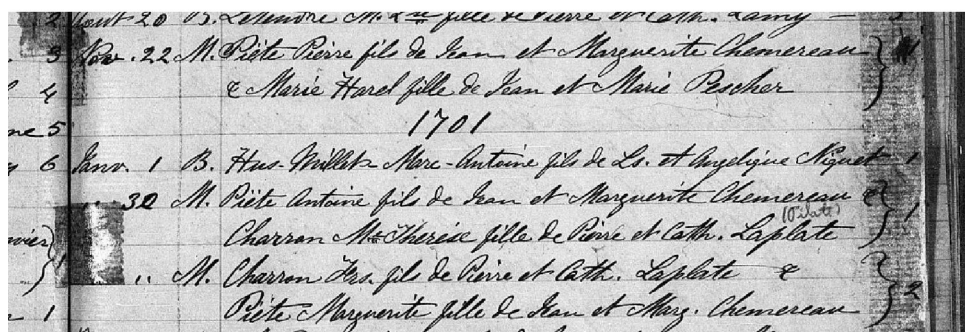 2 Aout 20 B. Letendre M. Lse fille de Pierre et Cath. Lamy — 3
3 Nov. 22 M. Piète Pierre fils de Jean et Marguerite Chemereau } 1
4 & Marie Harel fille de Jean et Marie Pescher
ne 5 1701
6 Janv. 1 B. Hus-Millet Marc-Antoine fils de Ls. et Angelique Niquet 1
" 30 M. Piète Antoine fils de Jean et Marguerite Chemereau & } 1
vier) Charron M. Thérèse fille de Pierre et Cath. Laplate (Pilate)
" M. Charron Frs. fils de Pierre et Cath. Laplate & } 2
1 Piète Marguerite fille de Jean et Marg. Chemereau